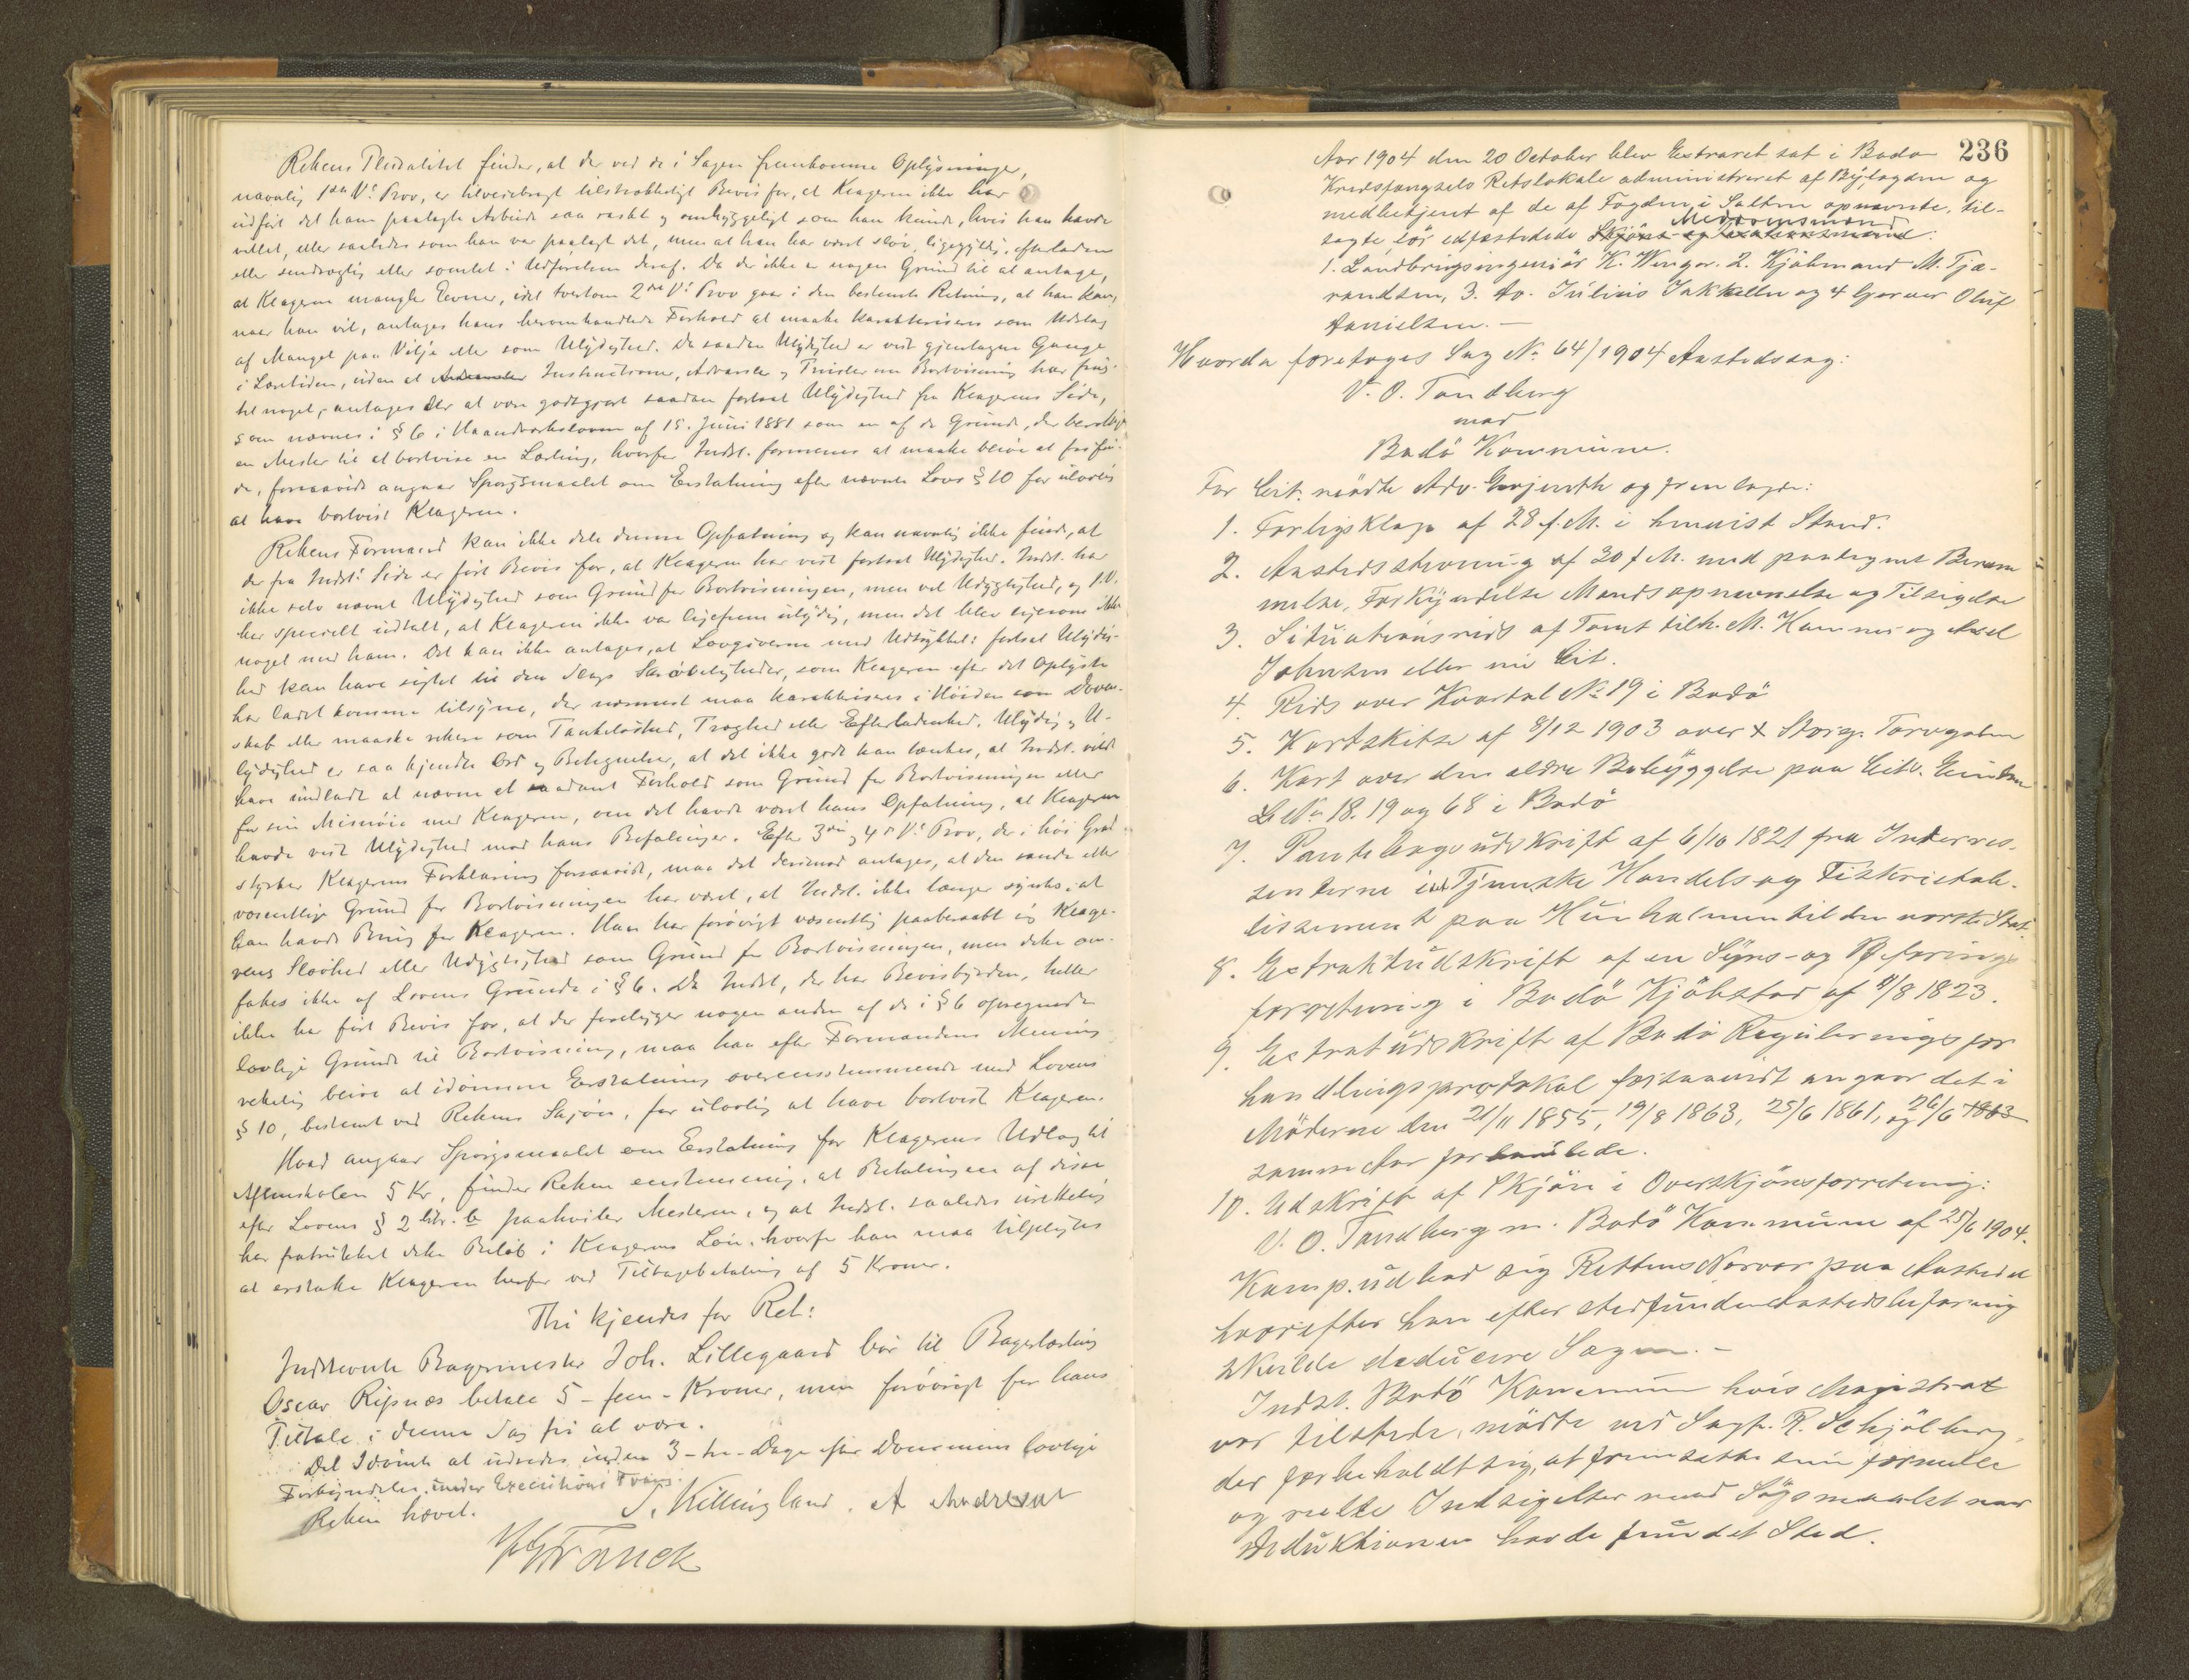 Rettens Pluralitet finder, at der ved de i Sagen fremkomne Oplysninger,
navnlig 1ste V.s Prov, er tilveiebragt tilstrækkeligt Bevis for, at Klageren ikke har
udført det ham paalagte Arbeide saa raskt og omhyggeligt som han kunde, hvis han havde
villet, eller saaledes som han var paalagt det, men at han har været sløv, ligegyldig, efterladen
eller sendrægtig eller somlet i Udførelsen deraf. Da der ikke er nogen Grund til at antage,
at Klageren mangler Evner, idet tvertom 2det V.s Prov gaar i den bestemte Retning, at han kan,
naar han vil, antages hans heromhandlede Forhold at maatte karakteriseres som Udslag
af Mangel paa Vilje eller som Ulydighed. Da saadan Ulydighed er vist gjentagne Gange
i Læretiden, uden at Instructioner, Advarsler og Trusler om Bortvisning har frug-
tet noget, antages der at være godtgjort saadan fortsat Ulydighed fra Klagerens Side,
som nævnes i § 6 i Haandverksloven af 15. Juni 1881 som en af de Grunde, der berettiger
en Mester til at bortvise en Lærling, hvorfor Indst. formenes at maatte blive at frifin-
de, forsaavidt angaar Spørgsmaalet om Erstatning efter nævnte Lovs § 10 for ulovlig
at have bortvist Klageren.
Rettens Formand kan ikke dele denne Opfatning og kan navnlig ikke finde, at
der fra Indst.s Side er ført Bevis for, at Klageren har vist fortsat Ulydighed. Indst. har
ikke selv nævnt Ulydighed som Grund for Bortvisningen, men vel Udygtighed, og 1.V.
har specielt udtalt, at Klageren ikke var ligefrem ulydig, men det blev ligesom ikke
noget med ham. Det kan ikke antages, at Lovgiveren med Udtrykket: fortsat Ulydig-
hed kan have sigtet til den Slags Skrøbeligheder, som Klageren efter det Oplyste
har ladet komme tilsyne, der nærmest maa karakteriseres i Høiden som Doven-
skab eller maaske rettere som Tankeløshed, Træghed eller Efterladenhed. Ulydig og U-
lydighed er saa kjendte Ord og Betegnelser, at det ikke godt kan tænkes, at Indst. vilde
have undladt at nævne et saadant Forhold som Grund for Bortvisningen eller
for sin Misnøie med Klageren, om det havde været hans Opfatning, at Klageren
havde vist Ulydighed mod hans Befalinger. Efter 3die og 4de V.s Prov, der i høi Grad
styrker Klagerens Forklaring forsaavidt, maa det derimod antages, at den sande eller
væsentlige Grund for Bortvisningen har været, at Indst. ikke længer syntes, at
han havde Brug for Klageren. Han har forøvrigt væsentlig paaberaabt sig Klage-
rens Sløvhed eller Udygtighed som Grund for Bortvisningen, men dette om-
fattes ikke af Lovens Grunde i § 6. Da Indst., der har Bevisbyrden, heller
ikke har ført Bevis for, at der foreligger nogen anden af de i § 6 opregnede
lovlige Grunde til Bortvisning, maa han efter Formandens Mening
rettelig blive at idømme Erstatning overensstemmende med Lovens
§ 10, bestemt ved Rettens Skjøn, for ulovlig at have bortvist Klageren.
Hvad angaar Spørgsmaalet om Erstatning for Klagerens Udlæg til
Aftenskolen 5 Kr., finder Retten enstemmig, at Betalingen af disse
efter Lovens § 2 litr. b paahviler Mesteren, og at Indst. saaledes urettelig
har fratrukket dette Beløb i Klagerens Løn, hvorfor han maa tilpligtes
at erstatte Klageren herfor ved Tilbagebetaling af 5 Kroner.
Thi kjendes for Ret:
Indstevnte Bagermester Joh. Lillegaard bør til Bagerlærling
Oscar Ripnæs betale 5 - fem - Kroner, men forøvrigt for hans
Tiltale i denne Sag fri at være.
Det Idømte at udredes inden 3 - tre - Dage efter Dommens lovlige
Forkyndelse under Executions Tvang.
Retten hævet.
S. Killingland. A Andresen
Franck
236
Aar 1904 den 20 October blev Extraret sat i Bodø
Kredsfængsels Retslokale administreret af Byfogden og
medbetjent af de af Fogden i Salten opnævnte, til-
sagte før edfæstede Skjøns- og Meddomsmænd:
1. Landbrugsingeniør K. Wenger. 2. Kjøbmand M. Tjæ-
randsen, 3. do. Julius Jakhelln og 4 Garver Oluf
Danielsen. —
Hvorda foretoges Sag No 64/1904 Aastedssag:
V. O. Tandberg
mod
Bodø Kommune.
For Cit. mødte Adv. og fremlagde:
1. Forligsklage af 28 f. M. i henvist Stand.
2. Aastedsstevning af 30 f M. med paategnet Beram
melse, Forkyndelse Mandsopnævnelse og Tilsigelse
3. Situationsrids af Tomt tilh. M. Hammer og Axel
Johnsen eller nu Cit.
4. Rids over Kvartal No 19 i Bodø
5. Kartskitse af 8/12 1903 over X Storg. Torvgaten
6. Kart over den ældre Bebyggelse paa Cit.s Eiendom
L No 18. 19 og 68 i Bodø
7. Pantebogsudskrift af 6/10 1821 fra Interres-
senterne i det Tjemske Handels og Fiskerietab-
lissement paa Hundholmen til den norske Stat
8. Extraktudskrift af en Syns- og Befarings
forretning i Bodø Kjøbstad af 11/8 1823.
9. Extraktudskrift af Bodø Regulerings for
handlingsprotokol forsaavidt angaar det i
Møderne den 21/11 1855, 19/8 1863, 25/6 1861, og 26/6 1863
samme Aar forhandlede.
10. Udskrift af Skjøn i Overskjønsforretning:
V. O. Tandberg m. Bodø Kommune af 25/6 1904.
Komp. udbad sig Rettens Nærvær paa Aastedet
hvorefter han efter stedfunden Aastedsbefaring
skulde deducere Sagen. —
Indst. Bodø Kommune hvis Magistrat
var tilstede, mødte ved Sagf. R. Schjølberg,
der forbeholdt sig, at fremsætte sine formelle
og reelle Indsigelser mod Søgsmaalet naar
Deduktionen havde fundet Sted.